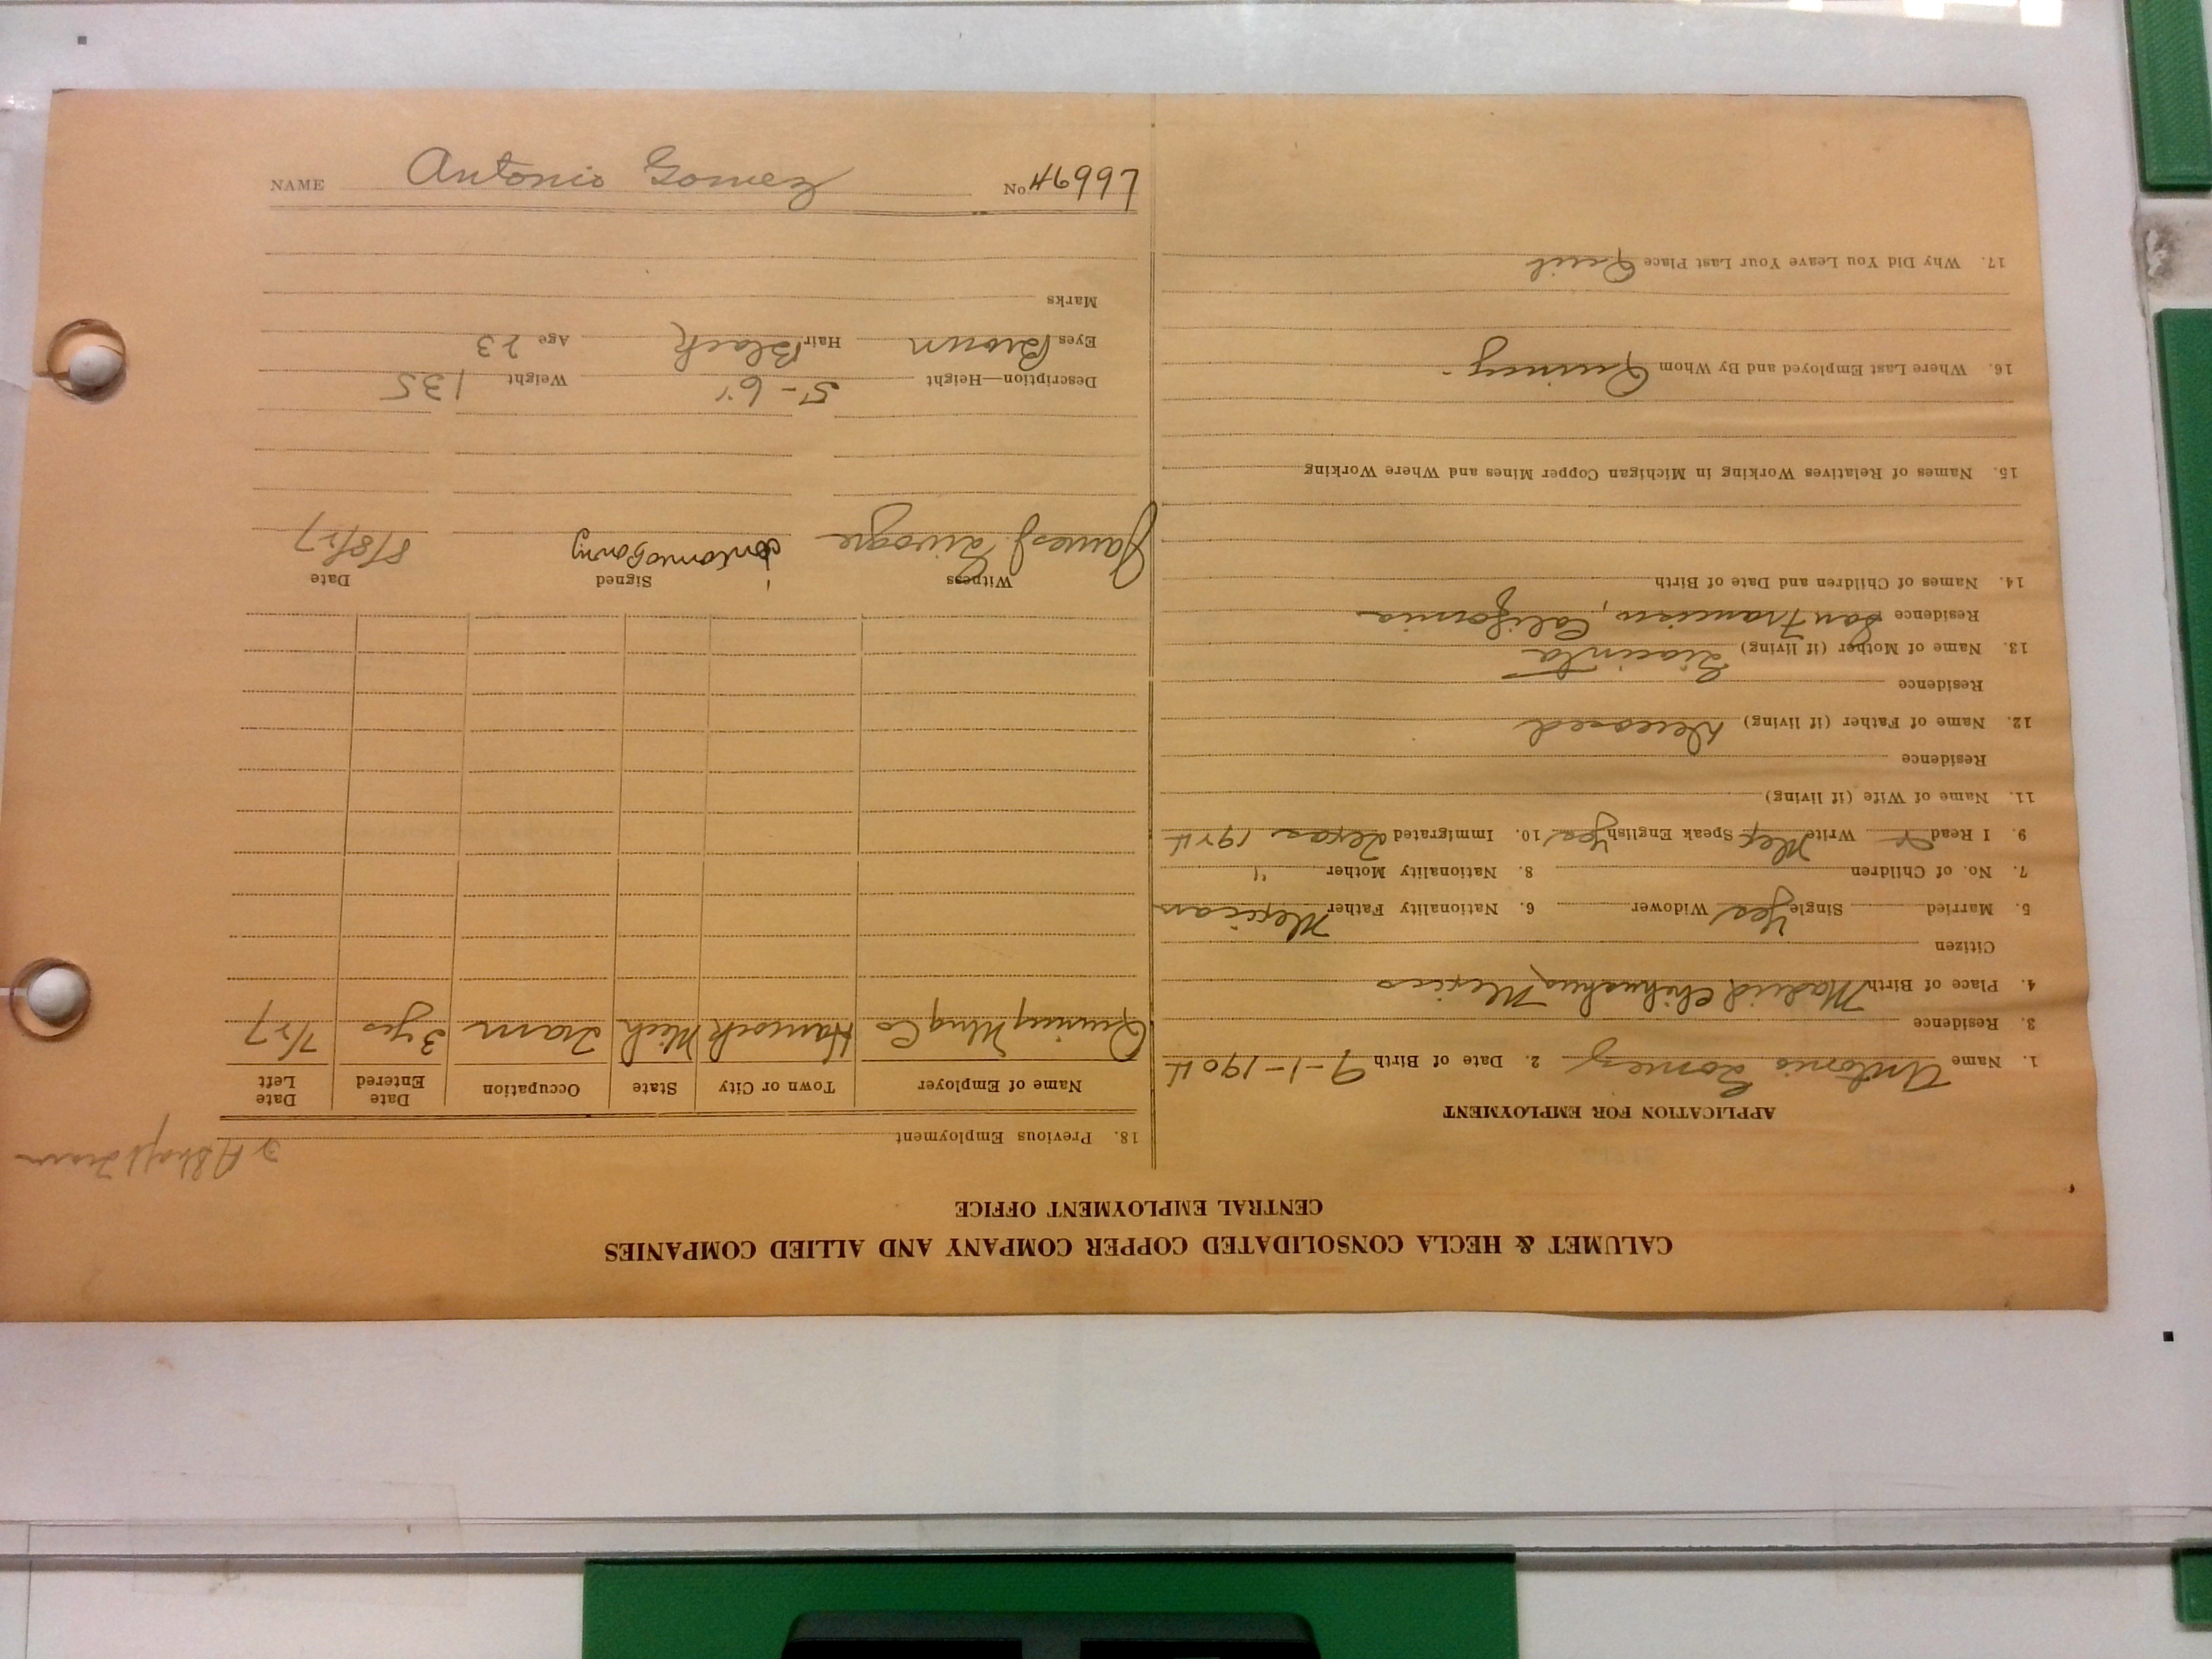 CALUMET & HECLA CONSOLIDATED COPPER COMPANY AND ALLIED COMPANIES
CENTRAL EMPLOYMENT OFFICE
APPLICATION FOR EMPLOYMENT
1. Name Antonio Gomez 2. Date of Birth 9-1-1904
3. Residence
4. Place of Birth Madrid Chihuahua, Mexico
Citizen
5. Married Single Yes Widower 6. Nationality Father Mexican
7. No. of Children 8. Nationality Mother "
9. I Read Write Mex Speak English Yes 10. Immigrated Texas 1924
11. Name of Wife (if living)
Residence
12. Name of Father (if living) Deceased
Residence
13. Name of Mother (if living)
Residence San Francisco, California
14. Names of Children and Date of Birth
15. Names of Relatives Working in Michigan Copper Mines and Where Working
16. Where Last Employed and By Whom Quincy
17. Why Did You Leave Your Last Place Quit
18. Previous Employment
Name of Employer Town or City State Occupation Date Entered Date Left
Quincy Mng Co Hancock Mich Tram 3 yrs 7/27
Witness Signed Date
James J. 8/8/27
Description—Height 5'-6" Weight 135
Eyes Brown Hair Black Age 23
Marks
NAME Antonio Gomez No 46997